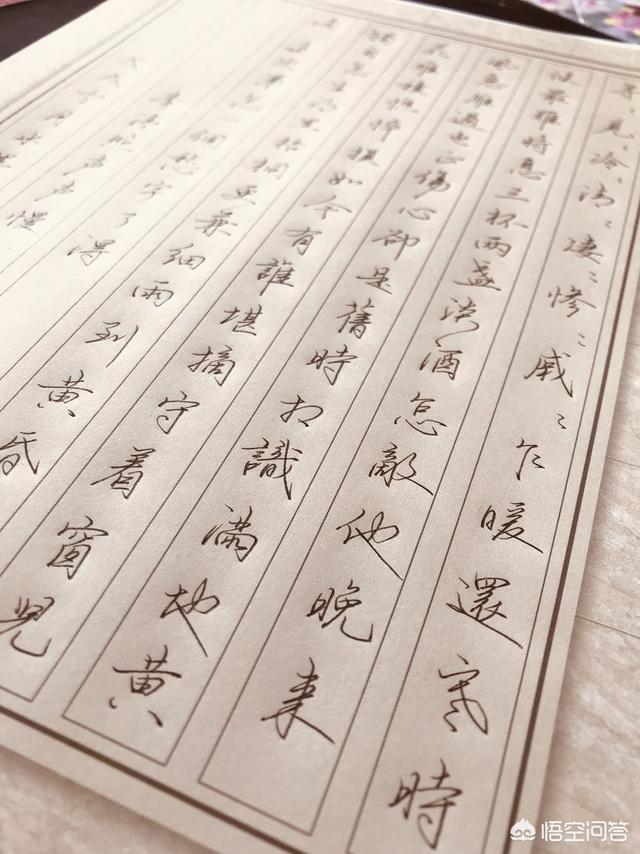 尋:覓:冷:清:凄:慘:戚:乍暖還寒時
候最難將息三杯兩盞淡酒怎敵他晚来
風急雁過也正傷心卻是舊時相識滿地黃
花堆積憔悴損如今有誰堪摘守着窗兒
獨自怎生得黑梧桐更兼細雨到黃昏
這次第怎一個愁字了得
李清照聲聲
慢
悟空问答